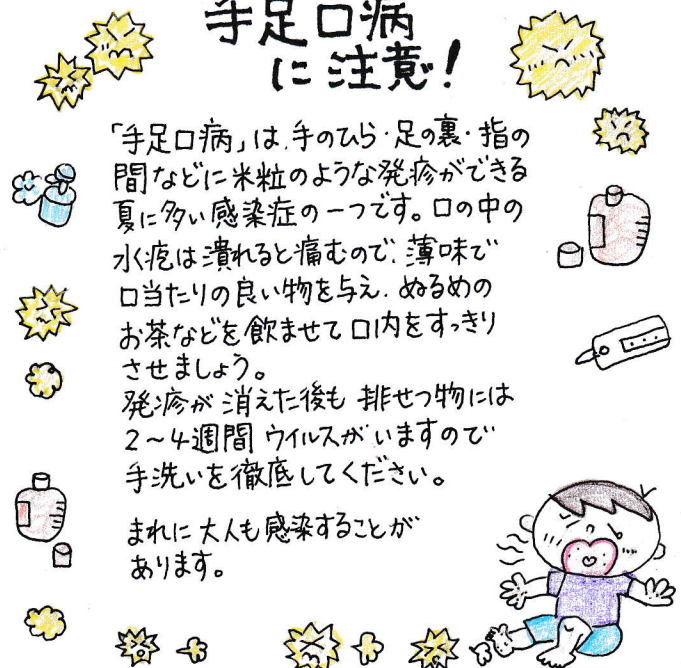 手足口病
に注意!
「手足口病」は、手のひら・足の裏・指の
間などに米粒のような発疹ができる
夏に多い感染症の一つです。口の中の
水疱は潰れると痛むので、薄味で
口当たりの良い物を与え、ぬるめの
お茶などを飲ませて口内をすっきり
させましょう。
発疹が消えた後も排せつ物には
2〜4週間ウイルスがいますので
手洗いを徹底してください。
まれに大人も感染することが
あります。